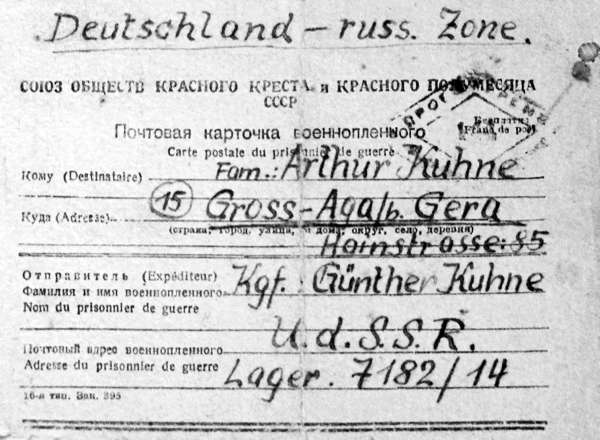 Deutschland – russ. Zone.
СОЮЗ ОБЩЕСТВ КРАСНОГО КРЕСТА и КРАСНОГО ПОЛУМЕСЯЦА
СССР
Бесплатно
Franc de port
Почтовая карточка военнопленного
Carte postale du prisonnier de guerre
Кому (Destinataire) Fam.: Arthur Kuhne
Куда (Adresse) (15) Gross-Aga/b. Gera
(страна, город, улица, № дома, округ, село, деревня)
Hainstrasse: 85
Отправитель (Expéditeur)
Фамилия и имя военнопленного Kgf.: Günther Kuhne
Nom du prisonnier de guerre
U.d.S.S.R.
Почтовый адрес военнопленного
Adresse du prisonnier de guerre Lager. 7182/14
16-я тип. Зак. 395